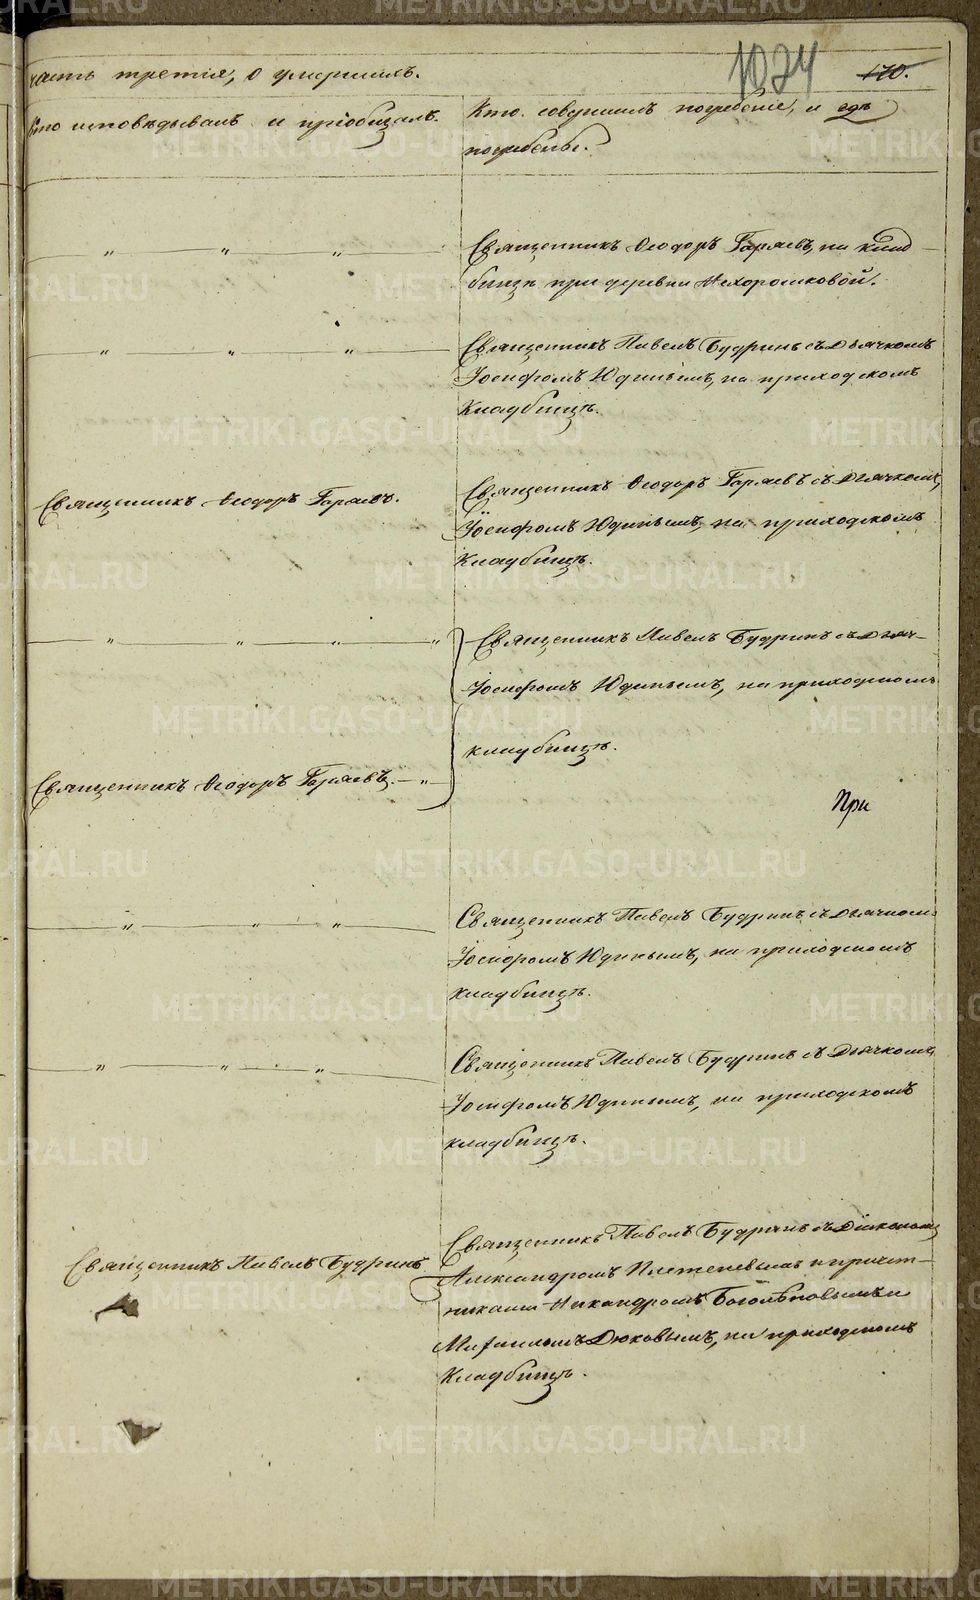 часть третія, о умершихъ.
1024
170.
Кто исповѣдывалъ и пріобщалъ.
Кто совершилъ погребеніе, и гдѣ
погребены.
Священникъ Ѳеодоръ Гаряевъ, на клад-
бищѣ при деревни Нехорошковой.
Священникъ Павелъ Будринъ съ Дьячкомъ
Іосифомъ Юдинымъ, на приходскомъ
кладбищѣ.
Священникъ Ѳеодоръ Гаряевъ.
Священникъ Ѳеодоръ Гаряевъ съ Дьячкомъ
Іосифомъ Юдинымъ, на приходскомъ
кладбищѣ.
Священникъ Павелъ Будринъ съ Дьяч-
Іосифомъ Юдинымъ, на приходскомъ
кладбищѣ.
Священникъ Ѳеодоръ Гаряевъ.
При
Священникъ Павелъ Будринъ съ Дьячкомъ
Іосифомъ Юдинымъ, на приходскомъ
кладбищѣ.
Священникъ Павелъ Будринъ съ Дьячкомъ
Іосифомъ Юдинымъ, на приходскомъ
кладбищѣ.
Священникъ Павелъ Будринъ
Священникъ Павелъ Будринъ съ Діакономъ
Александромъ Плетеневымъ и причет-
никами Никандромъ Боголѣповымъ и
Михаиломъ Дюковымъ, на приходскомъ
кладбищѣ.
METRIKI.GASO-URAL.RU